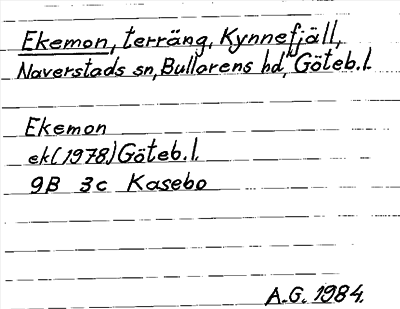 Ekemon, terräng, Kynnefjäll,
Naverstads sn, Bullarens hd, Göteb. l.
Ekemon
ek (1978) Göteb. l.
9B 3c Kasebo
A.G. 1984.